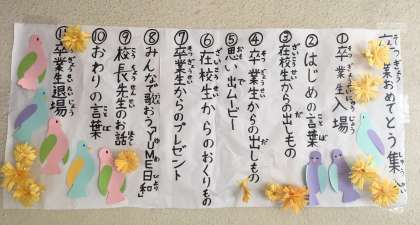 卒業おめでとう集
①卒業生入場
②はじめの言葉
③在校生からの出しもの
④卒業生からの出しもの
⑤思い出ムービー
⑥在校生からのおくりもの
⑦卒業生からのプレゼント
⑧みんなで歌おう「YUME日和」
⑨校長先生のお話
⑩おわりの言葉
⑪卒業生退場